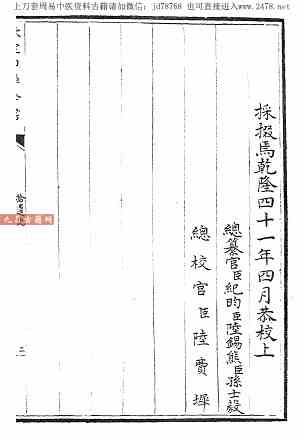 上万套周易中医资料古籍请加微信：jd78768 也可直接进入www.2478.net
採掇焉乾隆四十一年四月恭校上
總纂官臣紀昀臣陸錫熊臣孫士毅
總校官臣陸費墀
三
九鼎古籍网